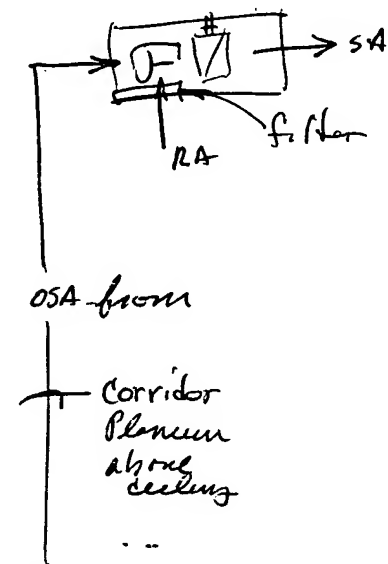 SA
filter
RA
OSA from
Corridor
Plenum
above
ceiling
...